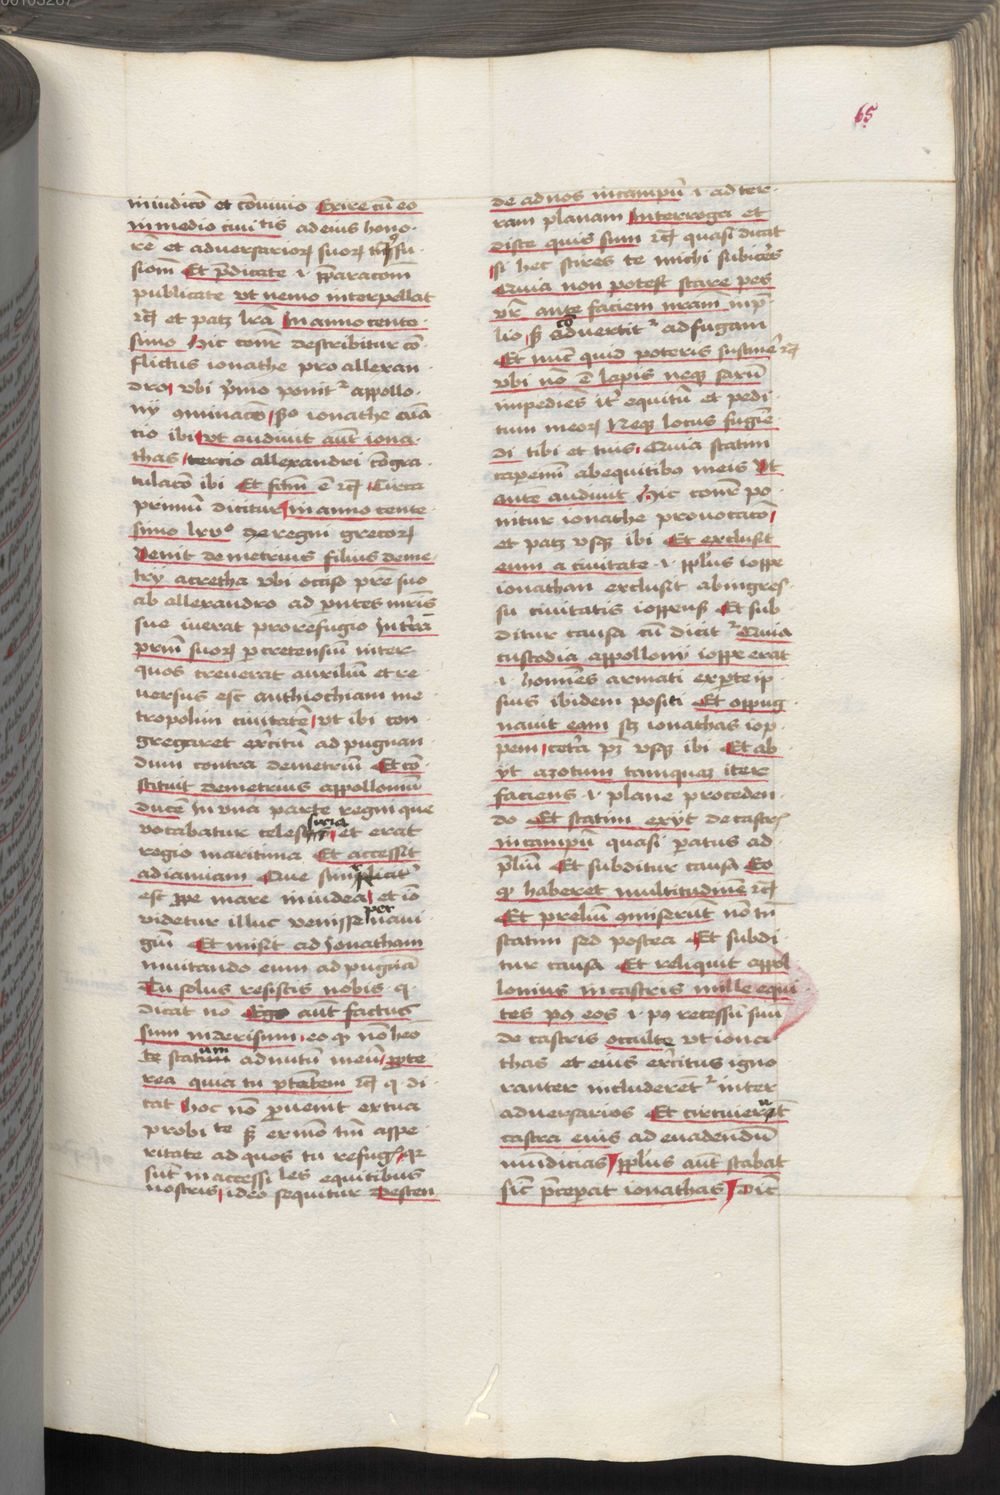 65
in iudico et cōuiuio Exire cū eo
in medio ciui tis ad eius hono
rē et aduersarioꝝ suoꝝ
siōm Et p̄dicate .i. p̄paracōm
publicate vt nemo interpellat
rcꝫ et patꝫ lr̄a In anno cente
simo hic cōnr describitur cō
flictus ionathe pro allexan
dro vbi p̄mo ponitʳ appollo
nij ꝯminacō ꝓo ionathe
cio ibi vt audiuit aūt iona
thas tercio allexandri cōgra
tulacō ibi Et fc̄m ē rcꝫ Circa
primū dicitur In anno cente
simo lxvᵒ de regni grecoꝝ
venit demetrius filius deme
try a cretha vbi occiso pr̄e suo
ab allexandro ad p̄ntes mr̄is
sue iuerat pro refugio In t̄rā
pr̄m suoꝝ ꝑ cretensiū inter
quos creuerat auxiliū et re
uersus est anthiochiam me
tropolim ciuitatē vt ibi con
gregaret ex̄citū ad pugnan
dum contra demetriū Et cō
stituit demetrius appolloniū
ducē In vna parte regni que
vocabatur celes siria et erat
regio maritima Et accessit
ad iamiam Que simplicit̄
est ꝓpe mare in iudea et iō
videtur illuc venisse per naui
giū Et misit ad Jonatham
inuitando eum ad pugnā
Tu solus resistis nobis .q.
dicat nō Ego aūt factus
sum in derisum eo ꝙ nō heo
te statum ad nutū meū ꝓpte
rea quia tu ptātem rcꝫ q. di
cat hoc nō ꝑuenit ex tua
probi te ꝫ ex mōtiū aspe
ritate ad quos tu refugis qꝛ
sūt inaccessi les equitibus
nostris ideo sequitur Descen
de ad nos in campū .i. ad ter
ram planam Interroga et
disce quis sum rcꝫ quasi dicat
si hec scires te michi subic̄es
Quia non potest stare pes
vr̄ ante faciem nr̄am in p̄
lio ꝫ cōuertitʳ ad fugam
Et nūc quid poteris sustinē rcꝫ
vbi nō ē lapis neqꝫ saxū
impedies it̄ equitū et pedi
tum meoꝝ Neqꝫ locus fugiē
di tibi et tuis Quia statim
capemī ab equitibꝰ meis Vt
aute audiuit Hic cōnr po
nitur ionathe prouocacō
et patꝫ vsqꝫ ibi Et exclusit
eum a ciuitate .i. pp̄lus ioppe
ionathan exclusit ab ingres
su ciuitatis ioppens̄ Et sub
ditur causa cū dicitʳ Quia
custodia appollonij ioppe erat
.i. homīes armati ex ꝑte ip
sius ibidem positi Et oppug
nauit eam sꝫ ionathas iop
pem cet̄a pꝫ vsqꝫ ibi Et ab
ijt azotum tamquaꝫ iter
faciens .i. plane proceden
do Et statim exijt de castrꝭ
in campū quasi patus ad
p̄liū Et subditur causa Eo
ꝙ haberet multitudinē rcꝫ
Et preliū ꝯmiserūt nō tn̄
statim sed postea Et subdi
tur causa Et reliquit appol
lonius in castris mille equi
tes pꝰ eos .i. pꝰ recessū suū
de castris occulte vt iona
thas et eius ex̄citus igno
ranter includeretʳ inter
aduersarios Et circuierūt
castra eius ad euadendū
inūdicias pp̄lus aūt stabat
sic̄ p̄ceperat ionathas Dic̄